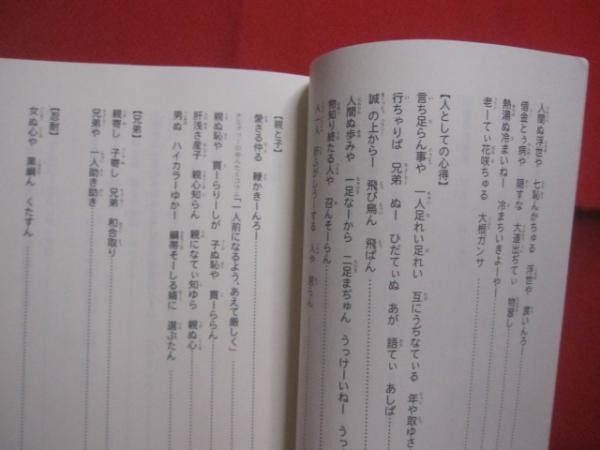 人間ぬ浮世や 七恥んかちゅる 浮世や 貫いんろー
借金とぅ病や 隠すな 大道出ぢてぃ 物習し
熱湯ぬ冷まいねー 冷まちいきよーや
老ーてぃ花咲ちゅる 大根ガンサ
【人としての心得】
言ち足らん事や 一人足れい足れい 互にうぢなている 年や取ゆさ
行ちゃりば 兄弟 ぬー ひだてぃぬ あが 語てぃ あしば
誠の上からー 飛び鳥ん 飛ばん
人間ぬ歩みや 一足なーから 二足まぢゅん うっけーいねー うっ
物知り終たる人や 召んそーらん
【親と子】
愛さる仲る 鞭かきーんろー
「一人前になるよう、あえて厳しく」
親ぬ恥や 買ーらりーしが 子ぬ恥や 買ーららん
肝浅さ産子 親心知らん 親になてぃ知ゆら 親ぬ心
男ぬ ハイカラーゆかー 褌帯そーしる婿に 選ぶたん
【兄弟】
親寄し 子寄し 兄弟 和合取り
兄弟や 一人助き助き
【忍耐】
女ぬ心や 業綱ん くたすん